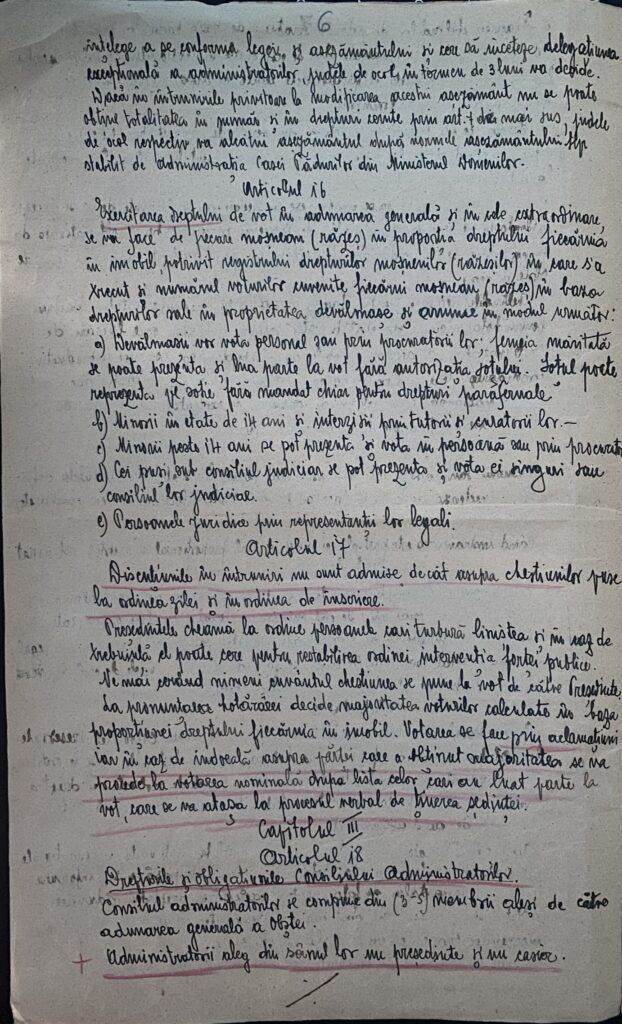 6
întelege a se conforma legei și asezământului si cere să inceteze delegatiunea
excepțională a administratorilor, judele de ocol, în termen de 3 luni va decide.
Dacă în intrunirile privitoare la modificarea acestui asezământ nu se poate
obtine totalitatea in număr si în drepturi cerute prin art. 7 de mai sus, judele
de ocol respectiv va alcătui asezământul după normele asezământului tip
stabilit de administratia Casei Pădurilor din Ministerul Domenilor.
Articolul 16
Exercitarea dreptului de vot în adunarea generală și în cele extraordinare,
se va face de fiecare mosnean (răzes) în proportia dreptului fiecăruia
în imobil, potrivit registrului drepturilor mosnenilor (răzesilor) în care s'a
trecut si numărul voturilor cuvenite fiecărui mosnean (răzes) în baza
drepturilor sale în proprietatea devălmase și anume în modul următor:
a) Devălmasii vor vota personal sau prin procuratorii lor; femeia măritată
se poate prezenta si lua parte la vot fără autorizatia sotului. Sotul poate
reprezenta pe sotie fără mandat chiar pentru drepturi parafernale
b) Minorii în etate de 14 ani si interzisii prin tutorii si curatorii lor. —
c) Minorii peste 14 ani se pot prezenta si vota în persoană sau prin procurator
d) Cei pusi sub consiliul judiciar se pot prezenta si vota ei singuri sau
consiliul lor judiciar.
e) Persoanele juridice prin reprezentanții lor legali.
Articolul 17
Discutiunile în întruniri nu sunt admise decât asupra chestiunilor puse
la ordinea zilei și în ordinea de înscriere.
Presedintele cheamă la ordine persoanele cari turbură linistea si în caz de
trebuintă el poate cere pentru restabilirea ordinei interventia fortei publice.
Ne mai cerând nimeni cuvântul chestiunea se pune la vot de către Presedinte.
La pronuntarea hotărârei decide majoritatea voturilor calculate în baza
proportionei dreptului fiecăruia în imobil. Votarea se face prin aclamatiuni
iar în caz de indoeală asupra părtei care a obtinut majoritatea se va
procede la votarea nominală după lista celor cari au luat parte la
vot, care se va atasa la procesul verbal de tinerea sedintei.
Capitolul III
Articolul 18
Drepturile și obligatiunile Consiliului Administratorilor.
Consiliul administratorilor se compune din (3-5) membrii alesi de către
adunarea generală a Obstei.
+ Administratorii aleg din sânul lor un presedinte și un casier.